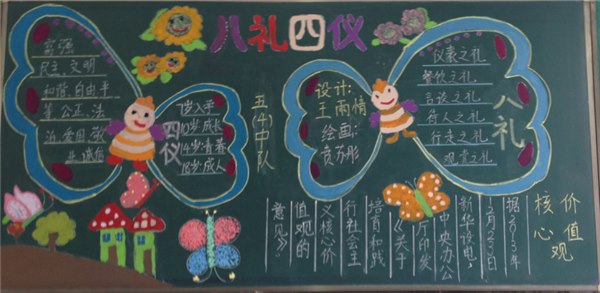 八礼四仪
富强
民主、文明
和谐、自由平
等、公正、法
治、爱国、敬
业、诚信
四仪
7岁入学
10岁成长
14岁青春
18岁成人
五(4)中队
设计:
王雨情
绘画:
贲苏彤
仪表之礼
餐饮之礼
言谈之礼
待人之礼
行走之礼
观赏之礼
八礼
价值观
核心
据2013年
12月23日
新华社电,
中央办公
厅印发
《关于
培育和践
行社会主
义核心价
值观的
意见》。